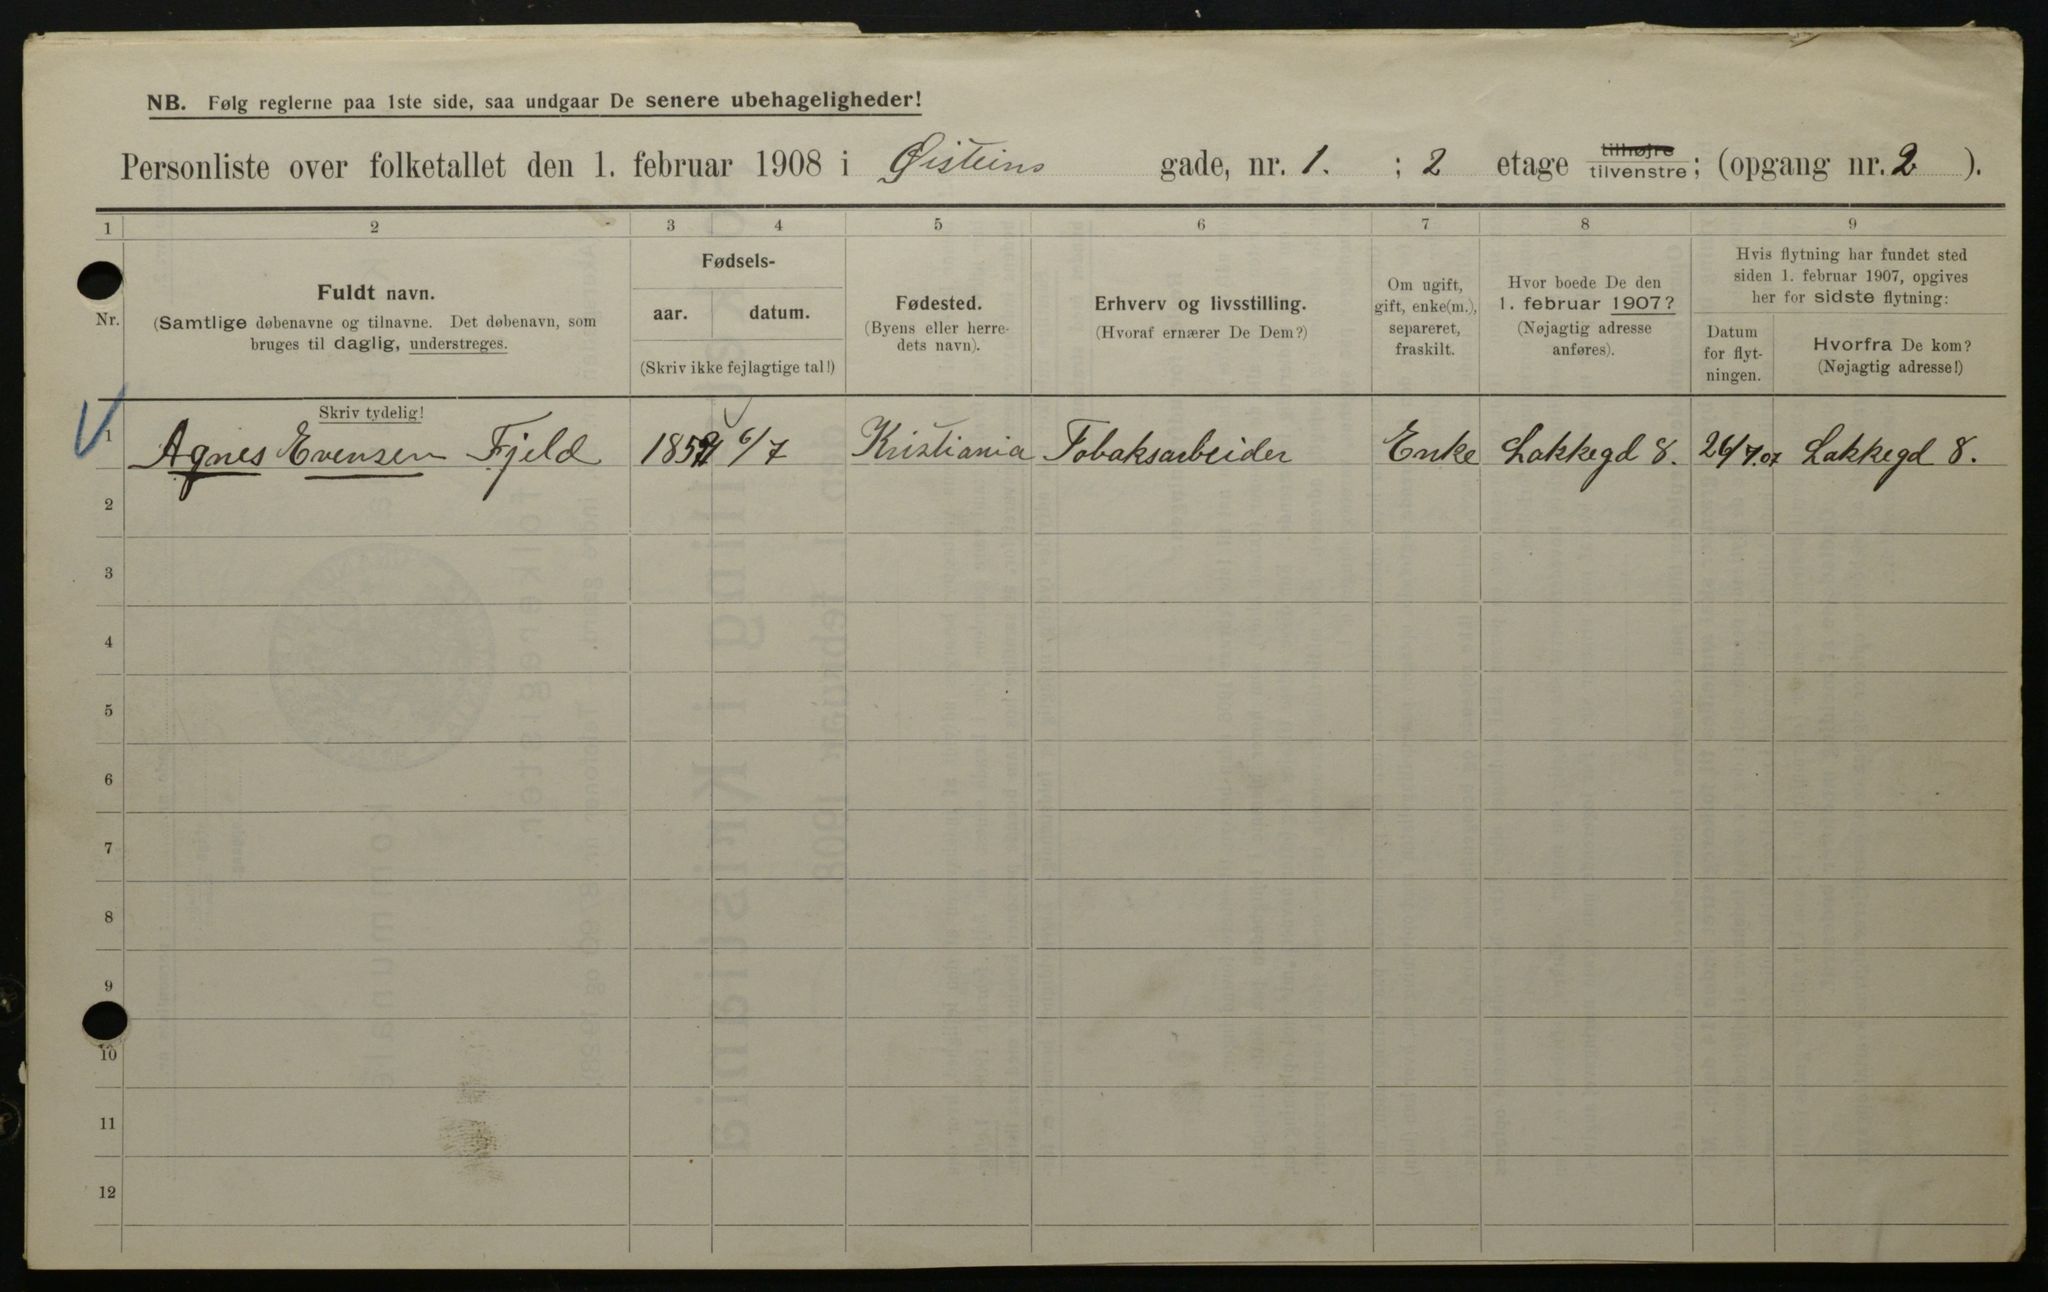 NB. Følg reglerne paa 1ste side, saa undgaar De senere ubehageligheder!
Personliste over folketallet den 1. februar 1908 i Øisteins gade, nr. 1. ; 2 etage tilhøjre tilvenstre; (opgang nr. 2 ).
1 2 3 4 5 6 7 8 9
Nr.
Fuldt navn.
(Samtlige døbenavne og tilnavne. Det døbenavn, som
bruges til daglig, understreges.
Fødsels-
aar. datum.
(Skriv ikke fejlagtige tal!)
Fødested.
(Byens eller herre-
dets navn).
Erhverv og livsstilling.
(Hvoraf ernærer De Dem?)
Om ugift,
gift, enke(m.),
separeret,
fraskilt.
Hvor boede De den
1. februar 1907?
(Nøjagtig adresse
anføres).
Hvis flytning har fundet sted
siden 1. februar 1907, opgives
her for sidste flytning:
Datum
for flyt-
ningen.
Hvorfra De kom?
(Nøjagtig adresse!)
Skriv tydelig!
1 Agnes Evensen Fjeld 6/7 Kristiania Tobaksarbeider Enke Lakkegd 8. 26/7.07 Lakkegd 8.
2
3
4
5
6
7
8
9
10
11
12